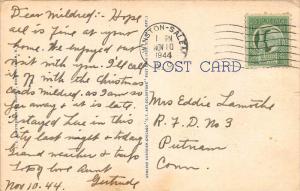 Dear Mildred:- Hope
all is fine at your
home. We enjoyed our
visit with you. I'll call
it off with the Christmas
cards mildred, as I am so
far away & it is late.
I stayed here in this
city last night & today
Grand weather & trip
Love Aunt
Nov 10. 44. Gertrude
WINSTON-SALEM
PM
NOV 10
1944
POST CARD
Mrs Eddie Lamothe
R.F.D. No 3
Putnam
Conn.